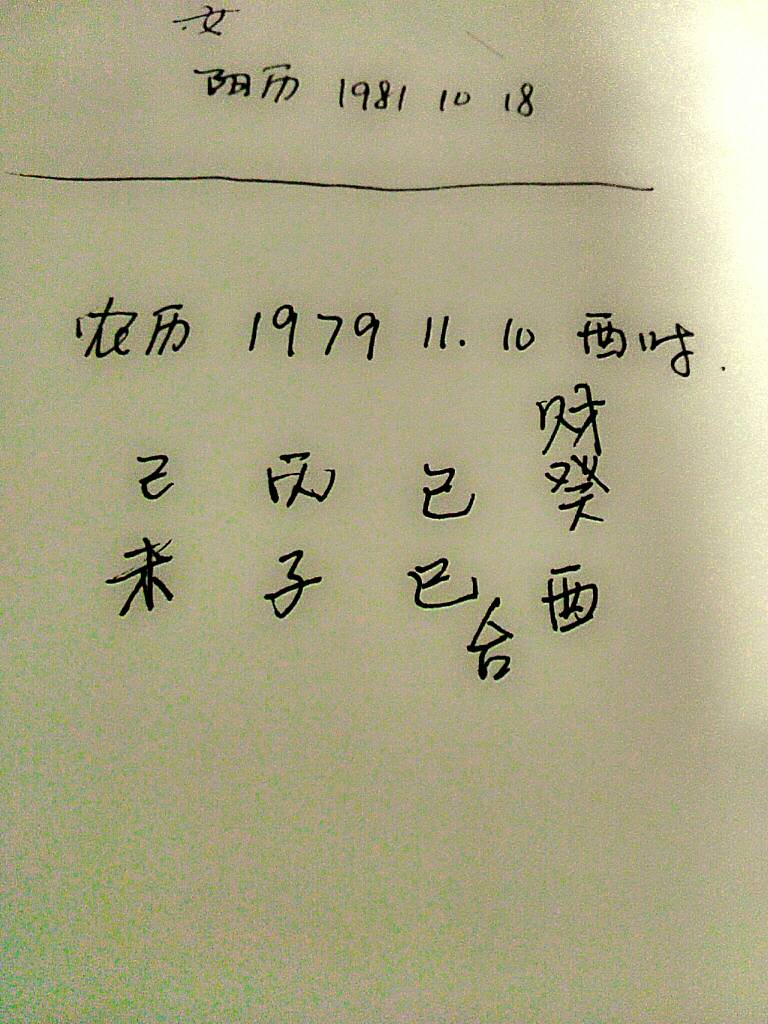 女
阳历 1981 10 18
农历 1979 11. 10 酉时.
财
己 丙 己 癸
未 子 巳 酉
合